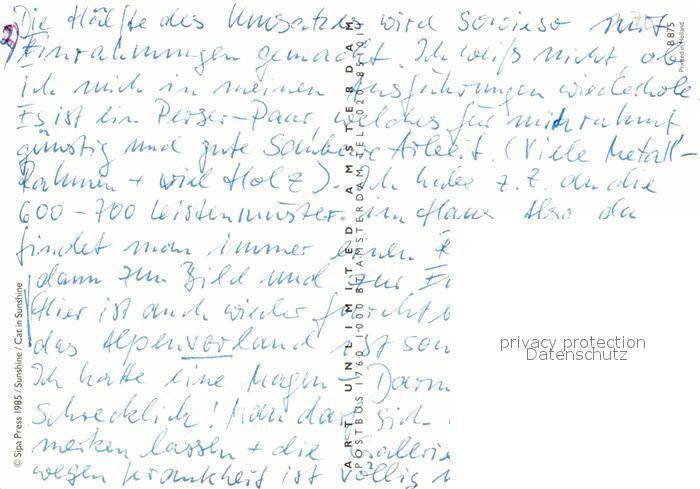 2)
Die Hälfte des Umsatzes wird sowieso mit
Einrahmungen gemacht. Ich weiß nicht, ob
ich mich in meinen Ausführungen wiederhole
Es ist ein Perser-Paar, welches für mich rahmt
günstig und gute saubere Arbeit. (Viele Metall-
Rahmen + viel Holz). Ich habe z.Z. an die
600-700 Leistenmuster im Haus Also da
findet man immer einen
dann zum Bild und zur
Hier ist auch wieder
das Alpenvorland ist
Ich hatte eine Magen- Darm
Schrecklich! Man darf sich
merken lassen + die Gallerie
wegen Krankheit ist völlig
© Sipa Press 1985 / Sunshine / Cat in Sunshine
ART UNLIMITED AMSTERDAM
POSTBUS 1760 1000 BT AMSTERDAM TEL. 020
B 875
Printed in Holland
privacy protection
Datenschutz